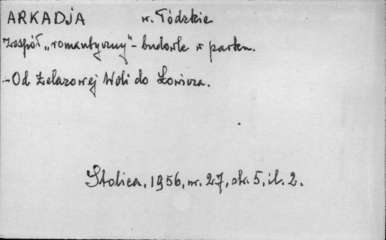 ARKADJA w. Łódzkie
Zespół „romantyczny" - budowle w parku.
- Od Żelazowej Woli do Łowicza.
Stolica, 1956, nr. 27, str. 5, il. 2.